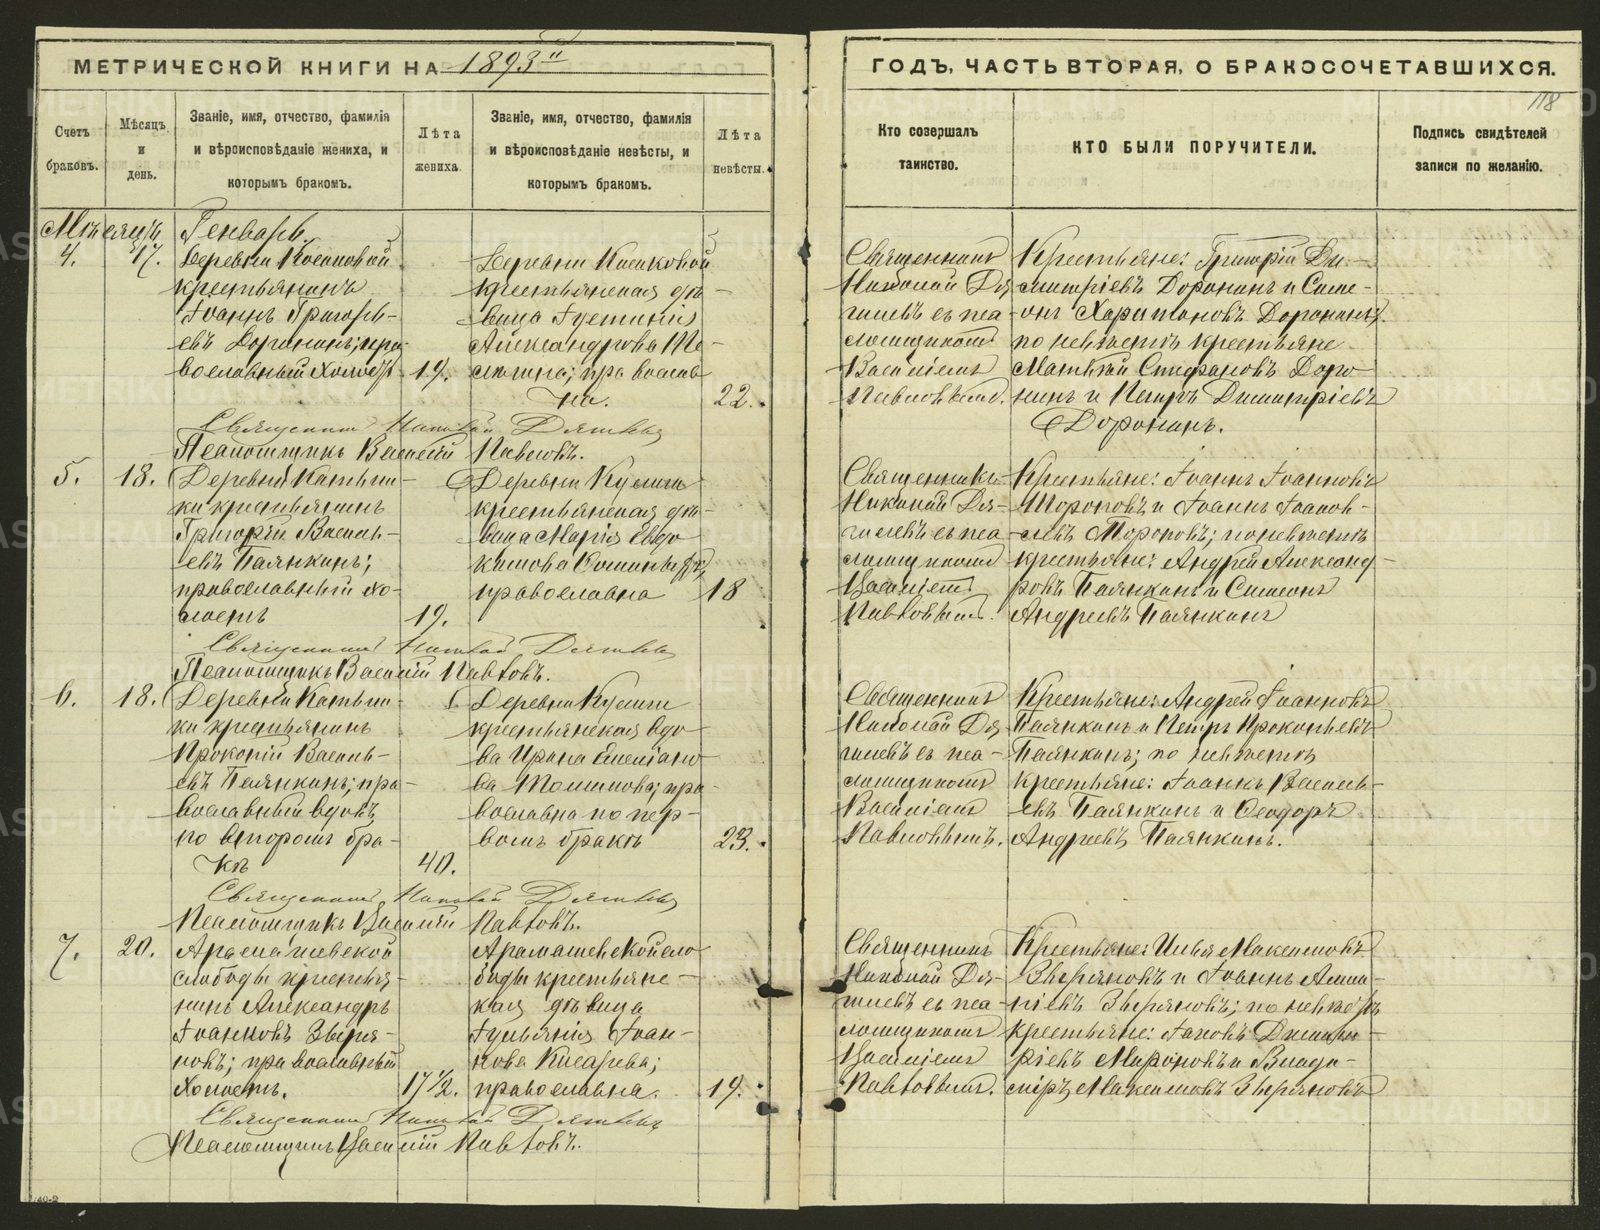 МЕТРИЧЕСКОЙ КНИГИ НА 1893й
ГОДЪ, ЧАСТЬ ВТОРАЯ, О БРАКОСОЧЕТАВШИХСЯ.
118
Счетъ браковъ.
Мѣсяцъ и день.
Званіе, имя, отчество, фамилія
и вѣроисповѣданіе жениха, и
которымъ бракомъ.
Лѣта
жениха.
Званіе, имя, отчество, фамилія
и вѣроисповѣданіе невѣсты, и
которымъ бракомъ.
Лѣта
невѣсты.
Кто созершалъ
таинство.
КТО БЫЛИ ПОРУЧИТЕЛИ.
Подпись свидѣтелей
записи по желанію.
Мѣсяцъ Генварь.
4. 17.
Деревни
крестьянинъ
Іоаннъ Григорь-
евъ Доронинъ; пра-
вославный холостъ 19.
Деревни
крестьянская дѣ-
вица Іустинія
Александрова
православ-
на. 22.
Священникъ
Николай Дя-
гилевъ съ пса-
ломщикомъ
Василіемъ
Павловымъ.
Крестьяне: Григорій Ди-
митріевъ Доронинъ и Симе-
онъ Харитоновъ Доронинъ;
по невѣстѣ крестьяне
Матѳей Стефановъ Доро
нинъ и Петръ Димитріевъ
Доронинъ.
Священникъ Николай Дягилевъ
Псаломщикъ Василій Павловъ.
5. 18.
Деревни
ки крестьянинъ
Григорій Василь-
евъ Паянкинъ;
православный хо-
лостъ 19.
Деревни
крестьянская дѣ-
вица Марія Евдо
кимова
православна 18
Священникъ
Николай Дя-
гилевъ съ пса-
ломщикомъ
Василіемъ
Павловымъ.
Крестьяне: Іоаннъ Іоанновъ
Тороповъ и Іоаннъ Іаков-
левъ Тороповъ; по невѣстѣ
крестьяне: Андрей Александ-
ровъ Паянкинъ и Симеонъ
Андреевъ Паянкинъ
Священникъ Николай Дягилевъ
Псаломщикъ Василій Павловъ.
6. 18.
Деревни
ки крестьянинъ
Прокопій Василь-
евъ Паянкинъ; пра-
вославный вдовъ,
по второмъ бра-
кѣ 40.
Деревни
крестьянская вдо
ва Ирина Емеліано
ва Томилова; пра-
вославна по пер-
вомъ бракѣ 23.
Священникъ
Николай Дя-
гилевъ съ пса-
ломщикомъ
Василіемъ
Павловымъ.
Крестьяне: Андрей Іоанновъ
Паянкинъ и Петръ Прокопьевъ
Паянкинъ; по невѣстѣ
крестьяне: Іоаннъ Василь-
евъ Паянкинъ и Ѳеодоръ
Андреевъ Паянкинъ.
Священникъ Николай Дягилевъ
Псаломщикъ Василій Павловъ.
7. 20.
Арамашевской
слободы крестья-
нинъ Александръ
Іоанновъ Звѣря-
новъ; православный
холостъ. 17½.
Арамашевской сло
боды крестьянс-
кая дѣвица
Іуліанія Іоан-
нова Кисарева;
православна. 19.
Священникъ
Николай Дя-
гилевъ съ пса-
ломщикомъ
Василіемъ
Павловымъ.
Крестьяне: Илья Максимовъ
Звѣряновъ и Іоаннъ
Звѣряновъ; по невѣстѣ
крестьяне: Іаковъ Димит-
ріевъ Мироновъ и Влади-
міръ Максимовъ Звѣряновъ
Священникъ Николай Дягилевъ
Псаломщикъ Василій Павловъ.